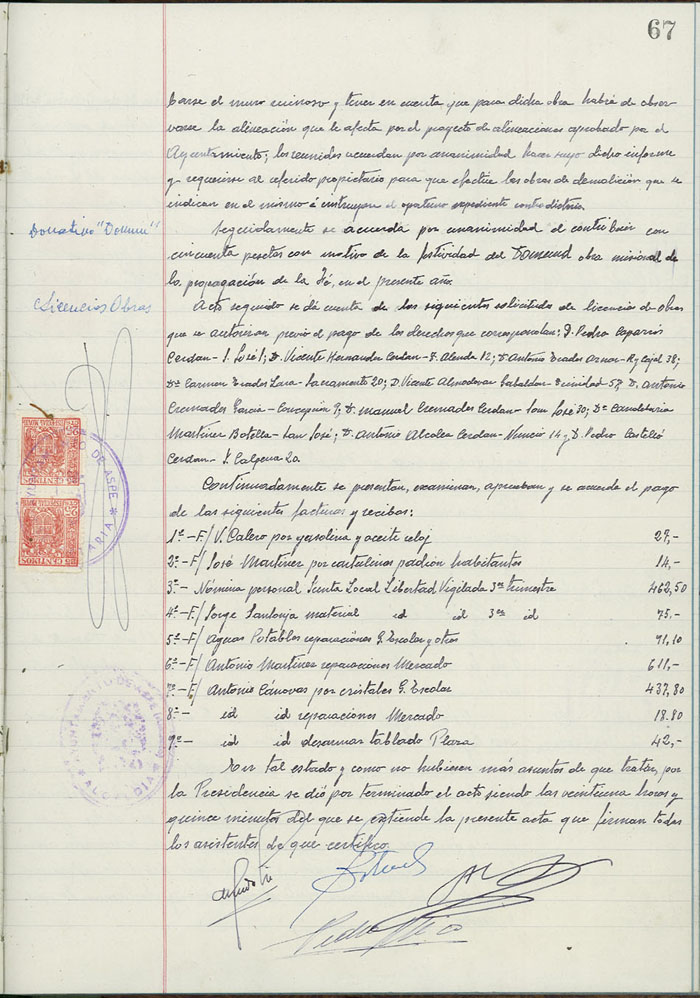 67
carse el muro ruinoso y tener en cuenta que para dicha obra habrá de obser-
varse la alineación que le afecta por el proyecto de alineaciones aprobado por el
Ayuntamiento; los reunidos acuerdan por unanimidad hacer suyo dicho informe
y requerirse al referido propietario para que efectúe las obras de demolición que se
indican en el mismo é instruyese el oportuno expediente contradictorio.
Donativo "Domun"
Seguidamente se acuerda por unanimidad el contribuir con
cincuenta pesetas con motivo de la festividad del Domund obra misional de
la propagación de la Fé, en el presente año.
Licencias Obras
Acto seguido se dá cuenta de las siguientes solicitudes de licencias de obras
que se autorizan previo el pago de los derechos que correspondan: D. Pedro Caparrós
Cerdan- S. José 1; D. Vicente Hernandez Cerdan- F. Alenda 12; D. Antonio Prades Aznar- R y Cajal 38;
Dª Carmen Prades Lara- Sacramento 20; D. Vicente Almodovar Gabaldon- Trinidad 58; D. Antonio
Cremades Garcia- Concepción 9; D. Manuel Cremades Cerdan- San José 30; Dª Candelaria
Martinez Botella- San José; D. Antonio Alcolea Cerdan- Nuncio 14 y D. Pedro Castelló
Cerdan- V. Calpena 20.
Continuadamente se presentan, examinan, aprueban y se acuerda el pago
de las siguientes facturas y recibos:
1º.- F/ V. Calero por gasolina y aceite reloj 27,-
2º.- F/ José Martinez por cartulinas padrón habitantes 14,-
3º.- Nómina personal Junta Local Libertad Vigilada 3er trimestre 462,50
4º.- F/ Jorge Santonja material id id 3er id 75,-
5º.- F/ Aguas Potables reparaciones G. Escolar y otros 91,10
6º.- F/ Antonio Martinez reparaciones Mercado 611,-
7º.- F/ Antonio Cánovas por cristales G. Escolar 437,80
8º.- id id reparaciones Mercado 18.80
9º.- id id desarmar tablado Plaza 42,-
En tal estado y como no hubiesen más asuntos de que tratar, por
la Presidencia se dió por terminado el acto siendo las veintiuna horas y
quince minutos del que se extiende la presente acta que firman todos
los asistentes de que certifico.
25
CENTIMOS
25
CENTIMOS
DE ASPE
AYUNTAMIENTO DE ASPE
ALCALDIA